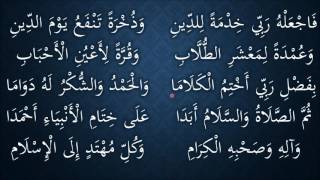 فَاجْعَلْهُ رَبِّي خِدْمَةً لِلدِّينِ وَذُخْرَةً تَنْفَعُ يَوْمَ الدِّينِ
وَعُمْدَةً لِمَعْشَرِ الطُّلَّابِ وَقُرَّةً لِأَعْيُنِ الْأَحْبَابِ
بِفَضْلِ رَبِّي أَخْتِمُ الْكَلَامَا وَالْحَمْدُ وَالشُّكْرُ لَهُ دَوَامَا
ثُمَّ الصَّلَاةُ وَالسَّلَامُ أَبَدَا عَلَى خِتَامِ الْأَنْبِيَاءِ أَحْمَدَا
وَآلِهِ وَصَحْبِهِ الْكِرَامِ وَكُلِّ مُهْتَدٍ إِلَى الْإِسْلَامِ